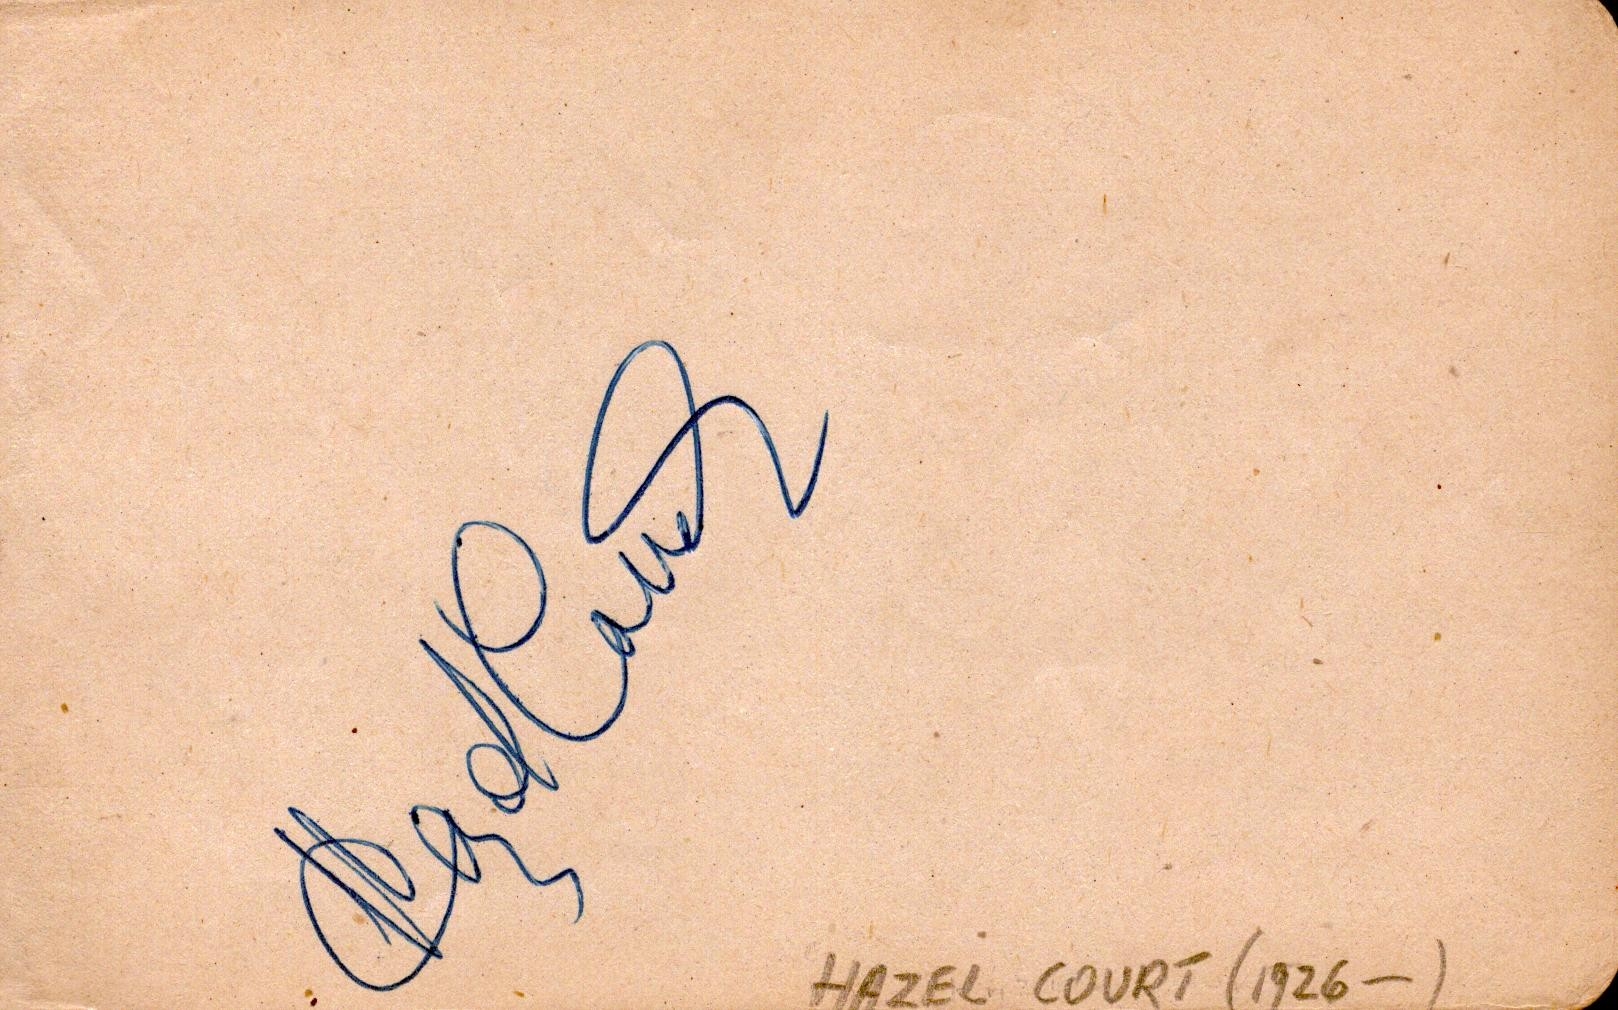 Hazel Court
HAZEL COURT (1926 — )